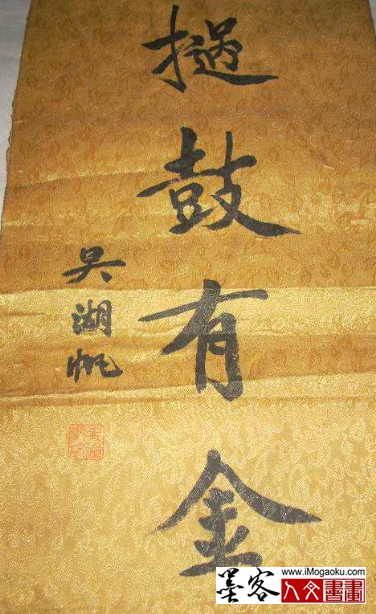 撾鼓有金
吴湖帆
www.iMogaoku.com
墨客
人文書畫